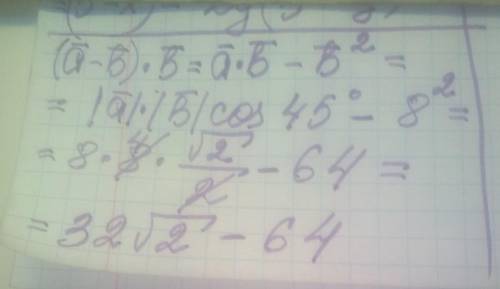 (ā-b̄)·b̄=ā·b̄-b̄²=
=|ā|·|b̄|cos 45°-8²=
=8·8̸⁴·√2/2̸-64=
=32√2-64